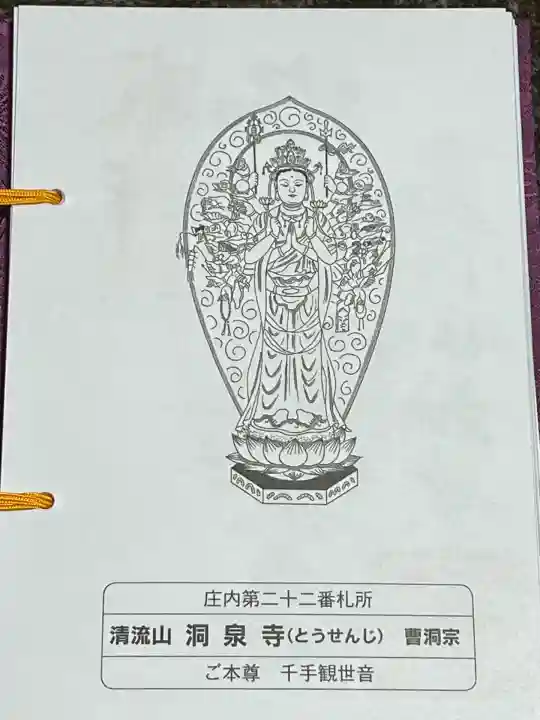 庄内第二十二番札所
清流山 洞泉寺(とうせんじ) 曹洞宗
ご本尊 千手観世音